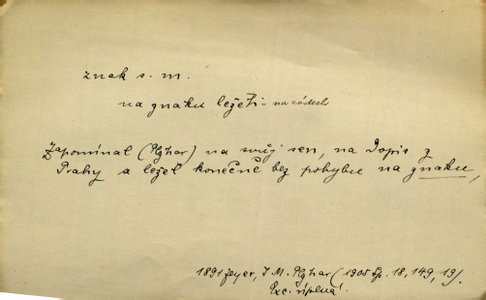 znak s. m.
na znaku ležeti - na zádech
Zapomínal (Plojhar) na svůj sen, na dopis z
Prahy a ležel konečně bez pohybu na znaku,
1891 Zeyer, J. M. Plojhar (1905 Sp. 18, 149, 19).
Exc. úplná.